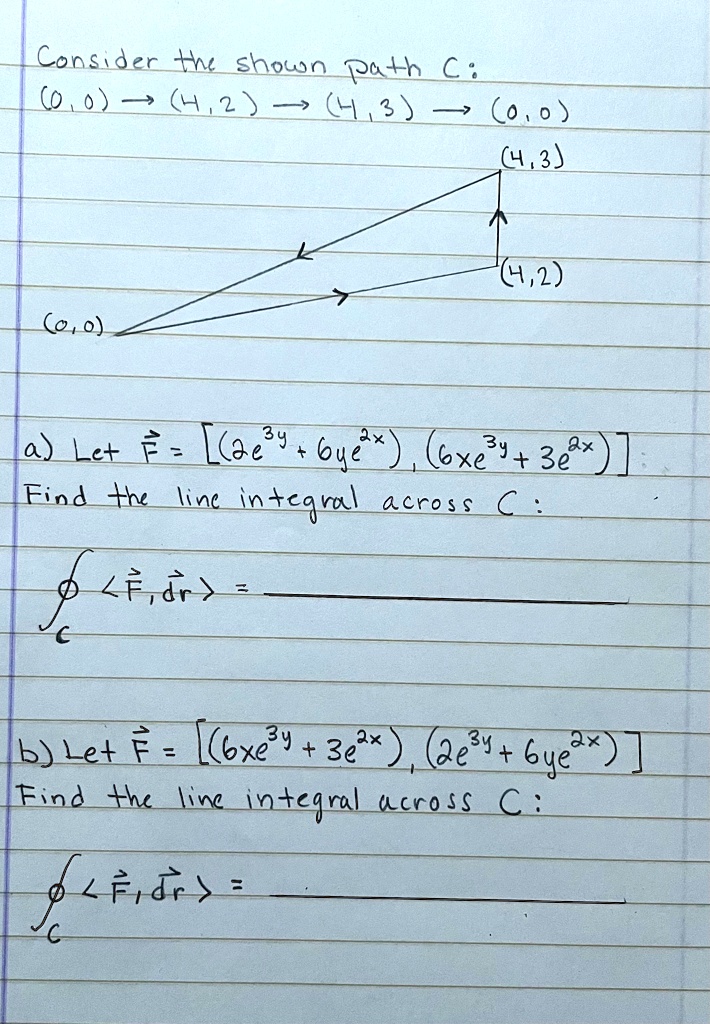 Consider the shown path C:
(0,0) → (4,2) → (4,3) → (0,0)
(4,3)
(4,2)
(0,0)
a) Let F⃗ = [(2e^{3y} + 6ye^{2x}), (6xe^{3y} + 3e^{2x})]
Find the line integral across C:
∮_C <F⃗, dr⃗> = ______
b) Let F⃗ = [(6xe^{3y} + 3e^{2x}), (2e^{3y} + 6ye^{2x})]
Find the line integral across C:
∮_C <F⃗, dr⃗> = ______